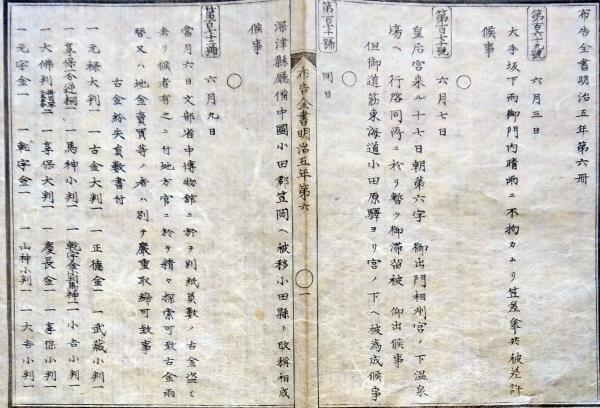 布告全書明治五年第六冊
第百六十九號 六月三日
大手坂下両御門内晴雨ニ不拘カムリ笠差傘共被差許
候事
第百七十號 六月七日
皇后宮来ル十七日朝第六字 御出門相州宮ノ下温泉
場ヘ 行啓同所ニ於テ暫ク御滞留被 仰出候事
但御道筋東海道小田原驛ヨリ宮ノ下ヘ被為成候事
同日
布告全書明治五年第六 一
深津縣廳備中國小田郡笠岡ヘ被移小田縣ト改称相成
候事
六月九日
當月六日文部省中博物館ニ於テ別紙員數ノ古金盗ミ
去リ候者有之ニ付地方官ニ於テ精々探索可致古金両
替又ハ地金賣買等ノ者ハ別テ嚴重取締可致事
古金紛失員數書付
一元禄大判一 一古金大判一 一正德金一 一武藏小判一
一享保 一馬神小判一 一乾字金小判馬神一 一小吉小判一
一大佛判 一享保大判一 一慶長金一 一享保小判一
一元字金一 一乾字金一 一山神小判一 一大吉小判一